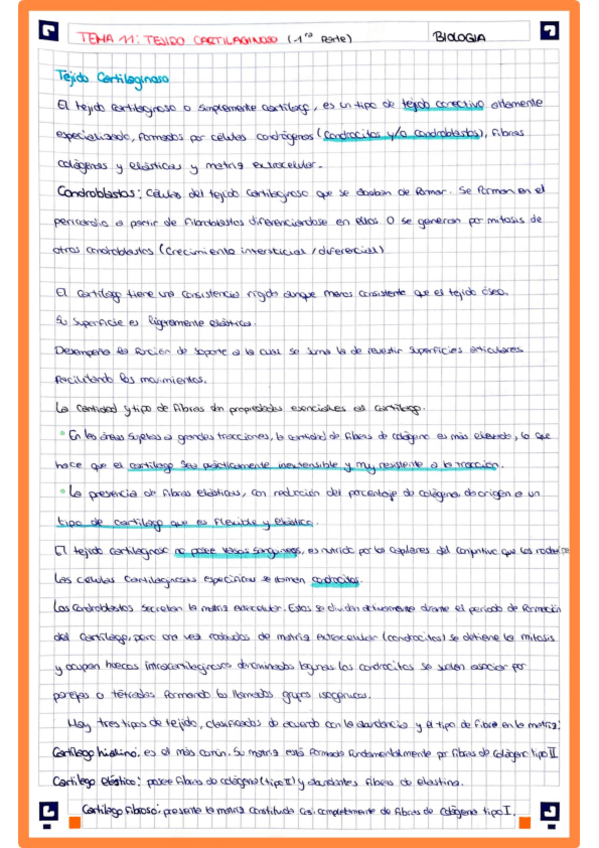 TEMA 11: TEJIDO CARTILAGINOSO (1ra Parte) BIOLOGIA
Tejido Cartilaginoso
El tejido cartilaginoso o simplemente cartílago, es un tipo de tejido conectivo altamente
especializado, formados por células condrógenas (condrocitos y/o condroblastos), fibras
colágenas y elásticas y matriz extracelular.
Condroblastos: Células del tejido cartilaginoso que se acaban de formar. Se forman en el
a partir de fibroblastos diferenciandose en ellos O se generan por mitosis de
otros condroblastos (Crecimiento intersticial / diferencial)
El cartílago tiene una consistencia rígida aunque menos consistente que el tejido óseo.
Su superficie es ligeramente elástica.
Desempeña la función de soporte a la cual se suma la de revestir superficies articulares
facilitando los movimientos.
La cantidad y tipo de fibras dan propiedades esenciales al cartílago.
• En las áreas sujetas a grandes tracciones, la cantidad de fibras de colágeno es más elevada, lo que
hace que el cartílago sea prácticamente inextensible y muy resistente a la tracción.
• La presencia de fibras elásticas, con reducción del porcentaje de colágeno, da origen a un
tipo de cartílago que es flexible y elástico.
El tejido cartilaginoso no posee vasos sanguineos, es nutrido por los capilares del conjuntivo que los rodea
Las células cartilaginosas específicas se llaman condrocitos.
Los condroblastos secretan la matriz extracelular. Estos se dividen activamente durante el periodo de formación
del cartílago, pero una vez rodeados de matriz extracelular (condrocitos) se detiene la mitosis
y ocupan huecos intracartilaginosos denominados lagunas los condrocitos se suelen asociar por
parejas o tétradas formando los llamados grupos isogénicos.
Hay tres tipos de tejido, clasificados de acuerdo con la abundancia y el tipo de fibra en la matriz:
Cartílago hialino: es el más común. Su matriz está formada fundamentalmente por fibras de colágeno tipo II
Cartílago elástico: posee fibras de colágeno (tipo II) y abundantes fibras de elastina.
Cartílago fibroso: presenta la matriz constituida casi completamente de fibras de colágeno tipo I.